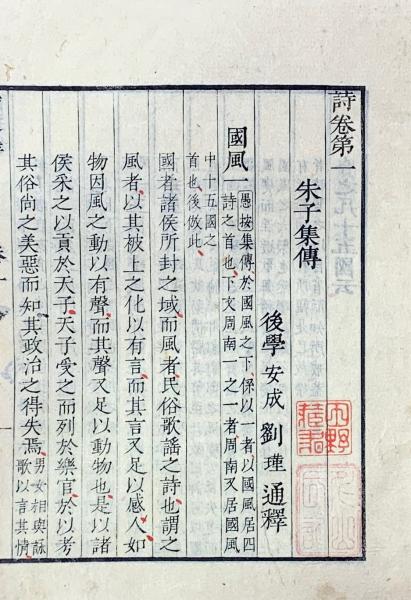 詩卷第一
朱子集傳
後學安成劉瑾通釋
國風一
愚按集傳於國風之下係以一者以國風居四
詩之首也下文周南一之一者周南又居國風
中十五國之
首也後倣此
國者諸侯所封之域而風者民俗歌謡之詩也謂之
風者以其被上之化以有言而其言又足以感人如
物因風之動以有聲而其聲又足以動物也是以諸
侯采之以貢於天子天子受之而列於樂官於以考
其俗尚之美惡而知其政治之得失焉
男女相與詠
歌以言其情